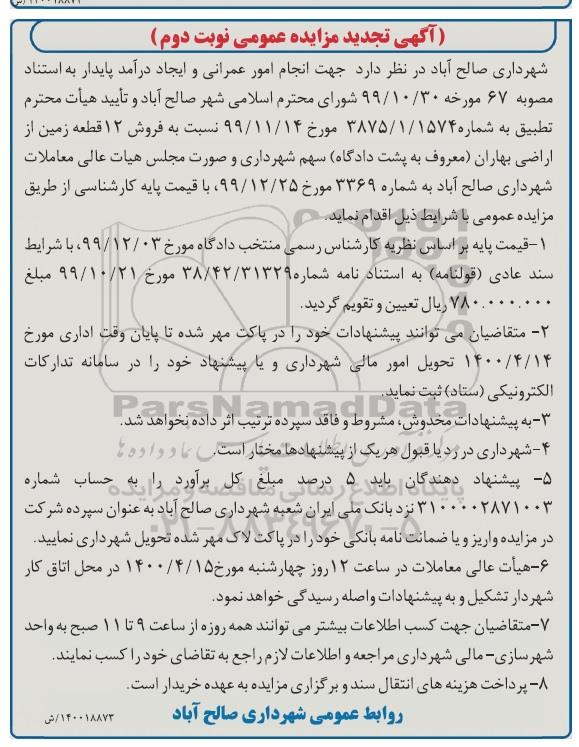 (آگهی تجدید مزایده عمومی نوبت دوم)
شهرداری صالح آباد در نظر دارد جهت انجام امور عمرانی و ایجاد درآمد پایدار به استناد
مصوبه ۶۷ مورخه ۹۹/۱۰/۳۰ شورای محترم اسلامی شهر صالح آباد و تأیید هیأت محترم
تطبیق به شماره۳۸۷۵/۱/۱۵۷۴ مورخ ۹۹/۱۱/۱۴ نسبت به فروش ۱۲قطعه زمین از
اراضی بهاران (معروف به پشت دادگاه) سهم شهرداری و صورت مجلس هیات عالی معاملات
شهرداری صالح آباد به شماره ۳۳۶۹ مورخ ۹۹/۱۲/۲۵، با قیمت پایه کارشناسی از طریق
مزایده عمومی با شرایط ذیل اقدام نماید.
۱-قیمت پایه بر اساس نظریه کارشناس رسمی منتخب دادگاه مورخ ۹۹/۱۲/۰۳، با شرایط
سند عادی (قولنامه) به استناد نامه شماره۳۸/۴۲/۳۱۳۲۹ مورخ ۹۹/۱۰/۲۱ مبلغ
۷۸۰.۰۰۰.۰۰۰ ریال تعیین و تقویم گردید.
۲- متقاضیان می توانند پیشنهادات خود را در پاکت مهر شده تا پایان وقت اداری مورخ
۱۴۰۰/۴/۱۴ تحویل امور مالی شهرداری و یا پیشنهاد خود را در سامانه تدارکات
الکترونیکی (ستاد) ثبت نماید.
ParsNamadData
۳-به پیشنهادات مخدوش، مشروط و فاقد سپرده ترتیب اثر داده نخواهد شد.
۴-شهرداری در رد یا قبول هر یک از پیشنهادها مختار است.
۵- پیشنهاد دهندگان باید ۵ درصد مبلغ کل برآورد را به حساب شماره
پایگاه اطلاع رسانی مناقصه و مزایده
۳۱۰۰۰۰۲۸۷۱۰۰۳ نزد بانک ملی ایران شعبه شهرداری صالح آباد به عنوان سپرده شرکت
۰۲۱-۸۸۳۴۹۶۷۰-۵
در مزایده واریز و یا ضمانت نامه بانکی خود را در پاکت لاک مهر شده تحویل شهرداری نمایید.
۶-هیأت عالی معاملات در ساعت ۱۲روز چهارشنبه مورخ۱۴۰۰/۴/۱۵ در محل اتاق کار
شهردار تشکیل و به پیشنهادات واصله رسیدگی خواهد نمود.
۷-متقاضیان جهت کسب اطلاعات بیشتر می توانند همه روزه از ساعت ۹ تا ۱۱ صبح به واحد
شهرسازی- مالی شهرداری مراجعه و اطلاعات لازم راجع به تقاضای خود را کسب نمایند.
۸- پرداخت هزینه های انتقال سند و برگزاری مزایده به عهده خریدار است.
روابط عمومی شهرداری صالح آباد
۱۴۰۰۱۸۸۷۳/ش